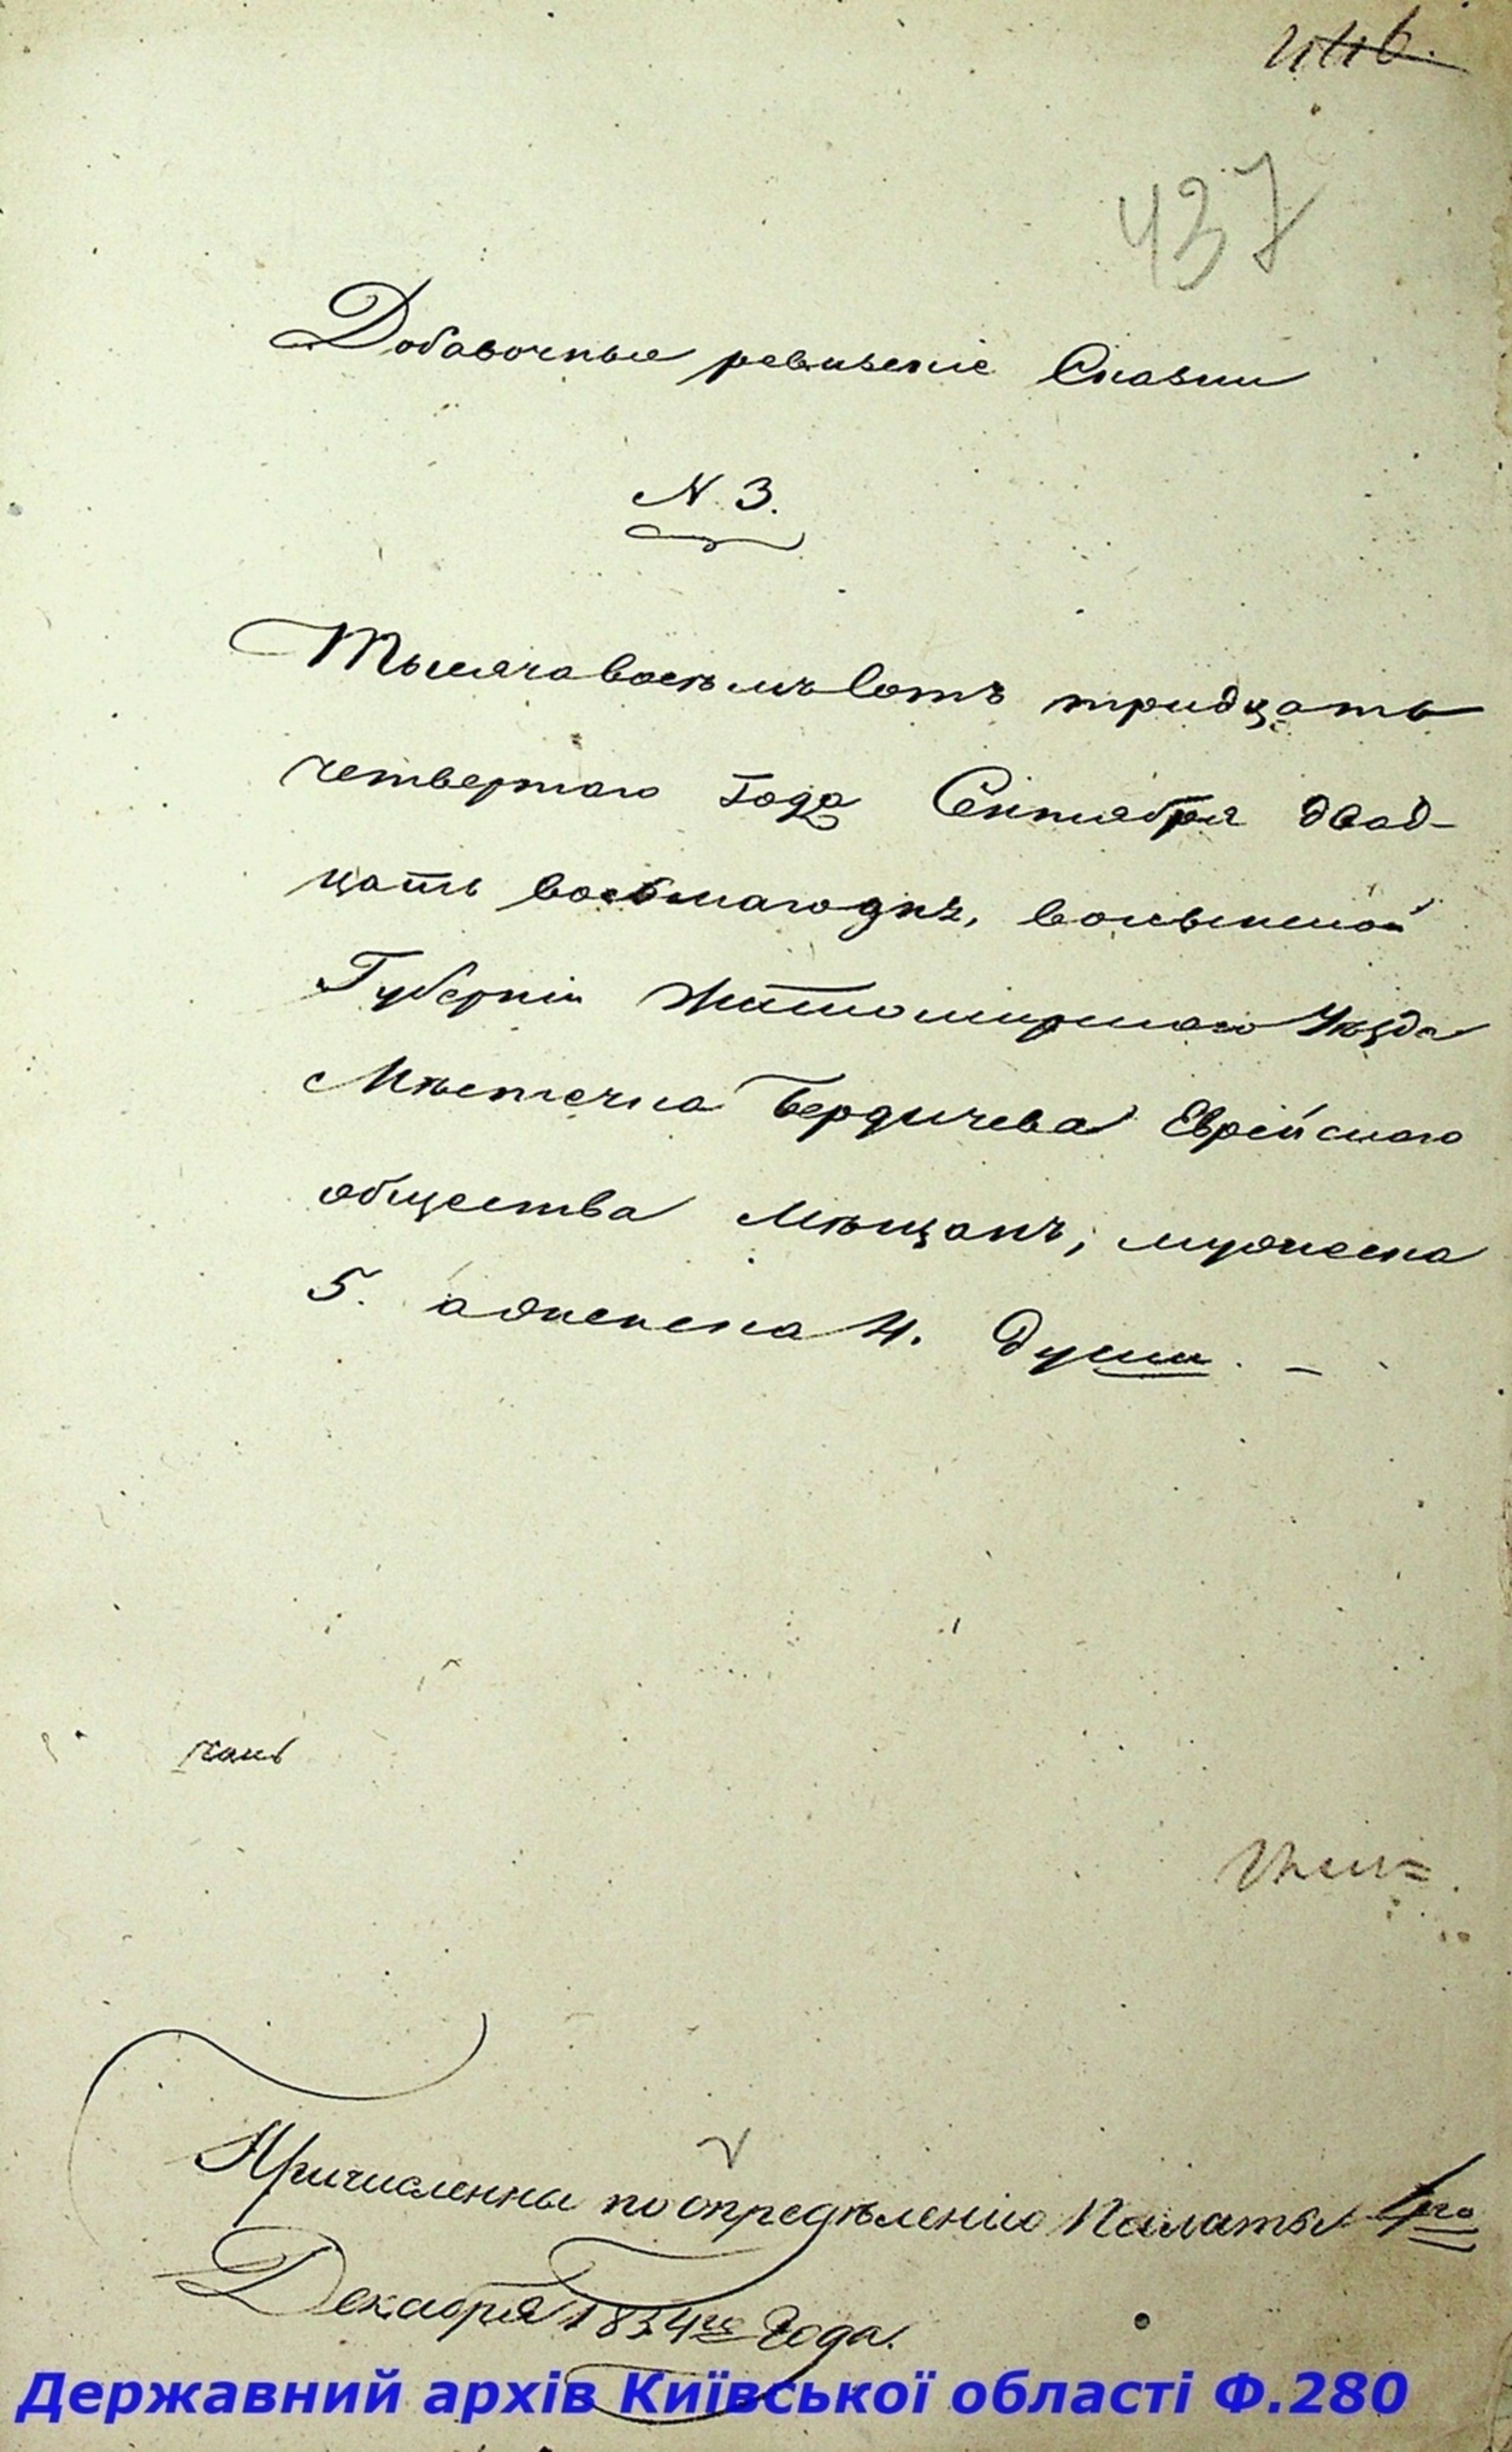 437
Добавочные ревизскіе Сказки
N 3.
Тысяча восѣмъ Сотъ тридцать
четвертаго Года Сентября двад-
цать восьмаго дня, волынской
Губерніи Житомирскаго Уѣзда
Мѣстечка Бердичева Еврейскаго
общества Мѣщанъ, мужеска
5. а женска 4. души. —
Причисленны по опредѣленію Палаты 4го
Декабря 1834го Года.
Державний архів Київської області Ф.280